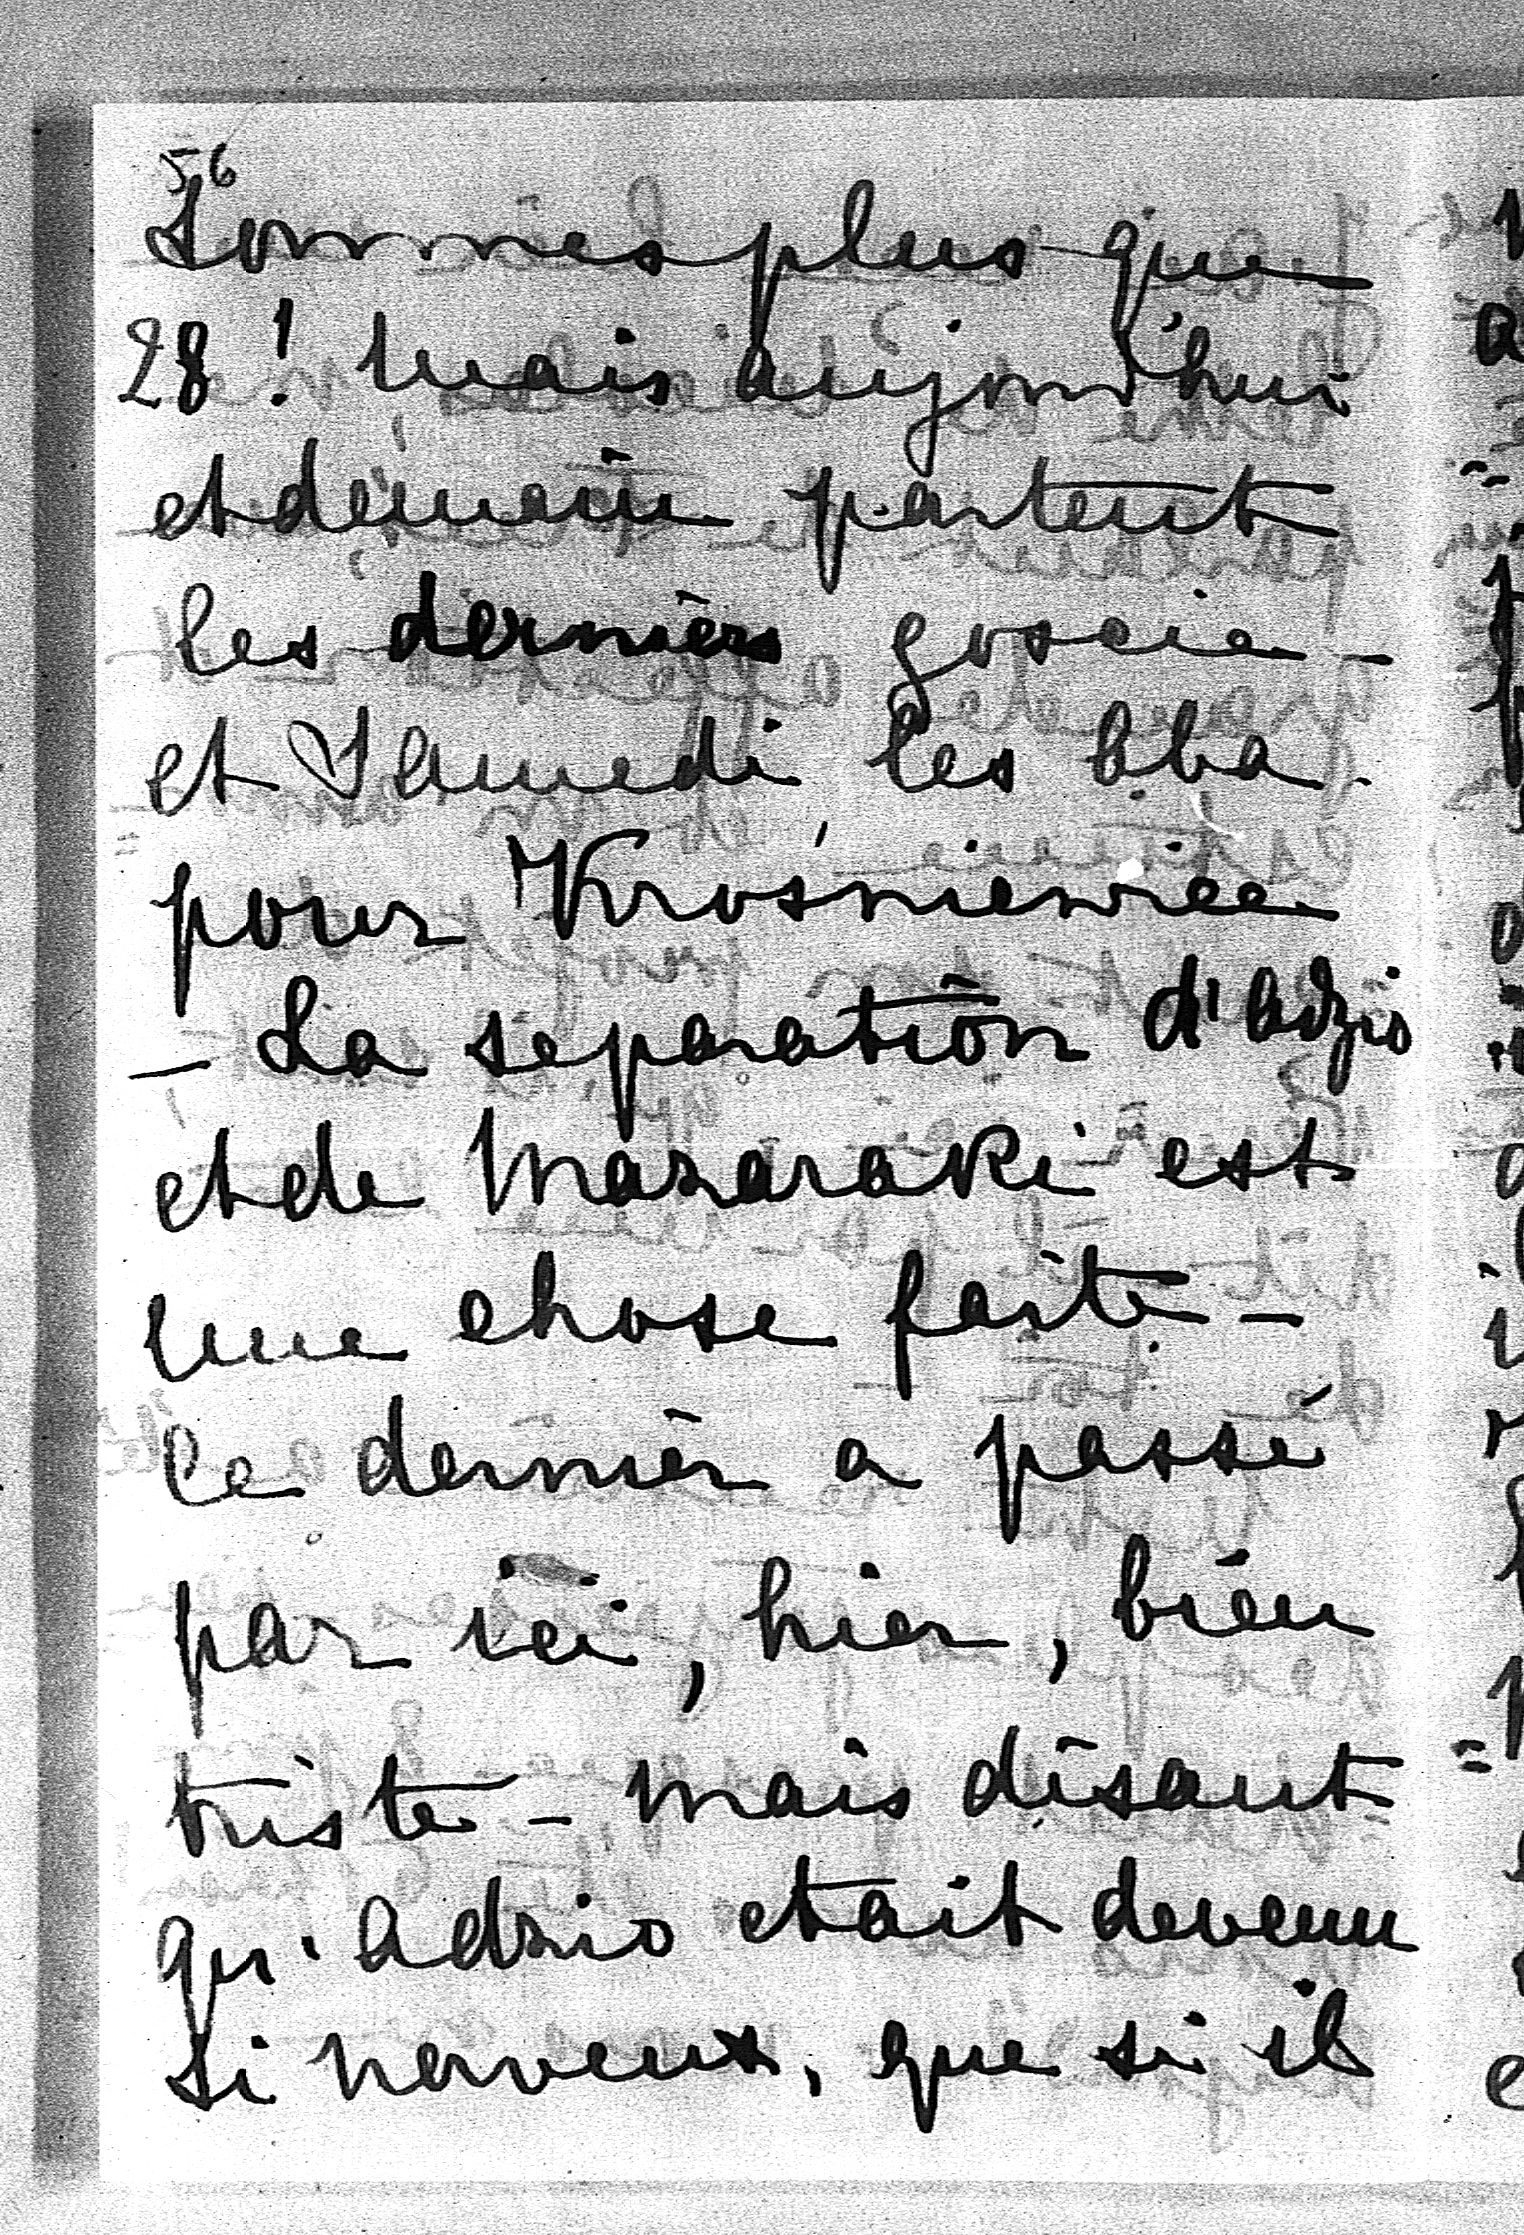 56
Sommes plus que
28! Mais aujourd'hui
et demain partent
les derniers goście -
et Samedi les bba.
pour Krośniewice
- La separation d'Adzio
et de Mazaraki est
une chose faite -
Ce dernier a passé
par ici, hier, bien
triste - mais disant
qu'Adzio etait devenu
si nerveux, que si il